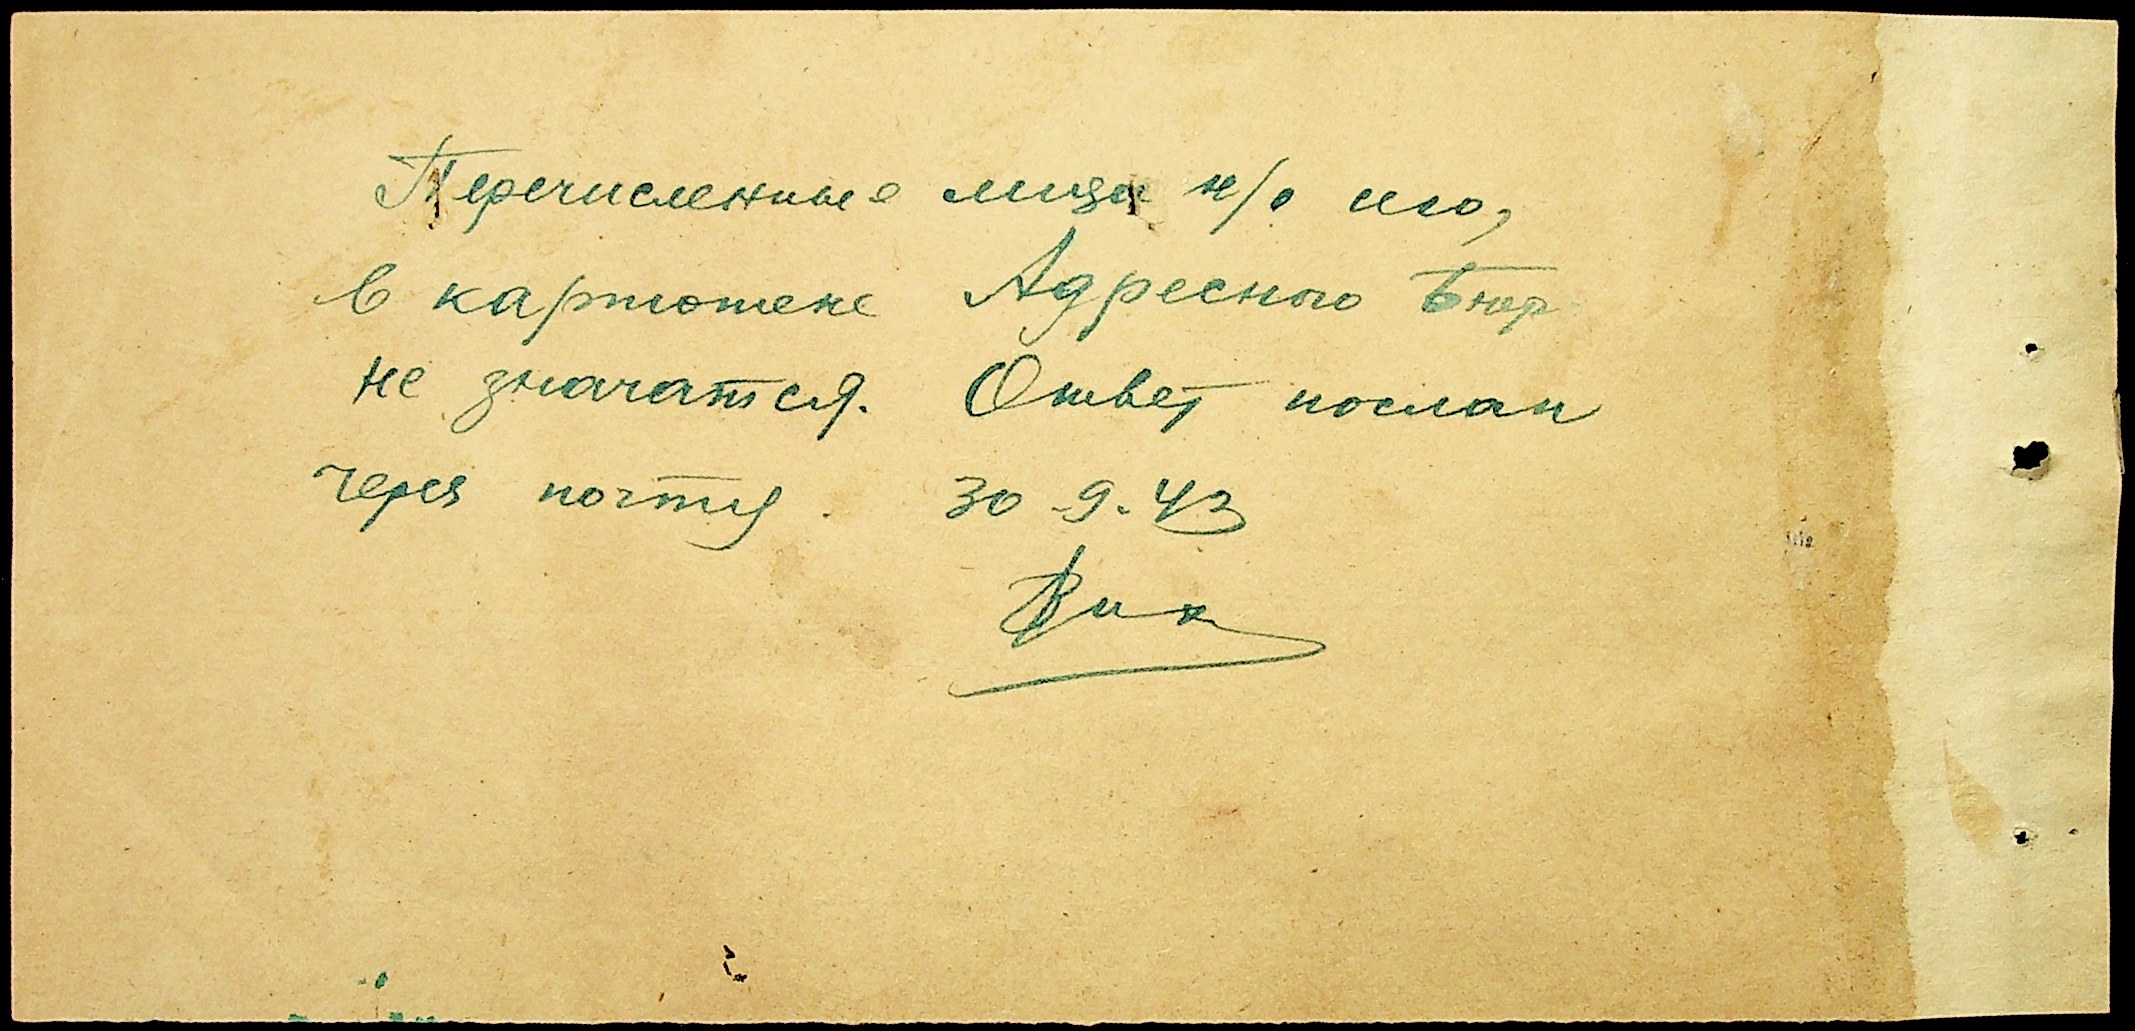 Перечисленные лица н/о сего,
в картотеке Адресного Бюр
не значатся. Ответ послан
через почту. 30.9.43